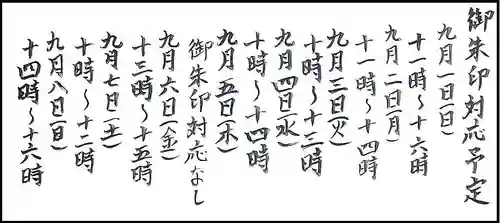 御朱印対応予定
九月一日(日)
十一時～十六時
九月二日(月)
十一時～十四時
九月三日(火)
十時～十三時
九月四日(水)
十時～十四時
九月五日(木)
御朱印対応なし
九月六日(金)
十三時～十五時
九月七日(土)
十時～十二時
九月八日(日)
十四時～十六時